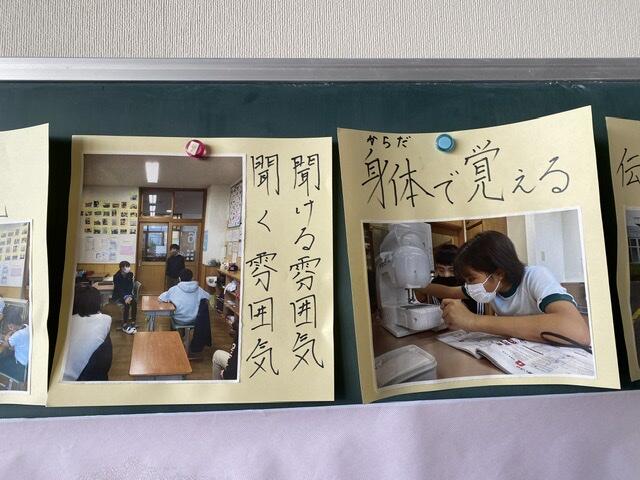 聞ける雰囲気
聞く雰囲気
からだ
身体で覚える
伝